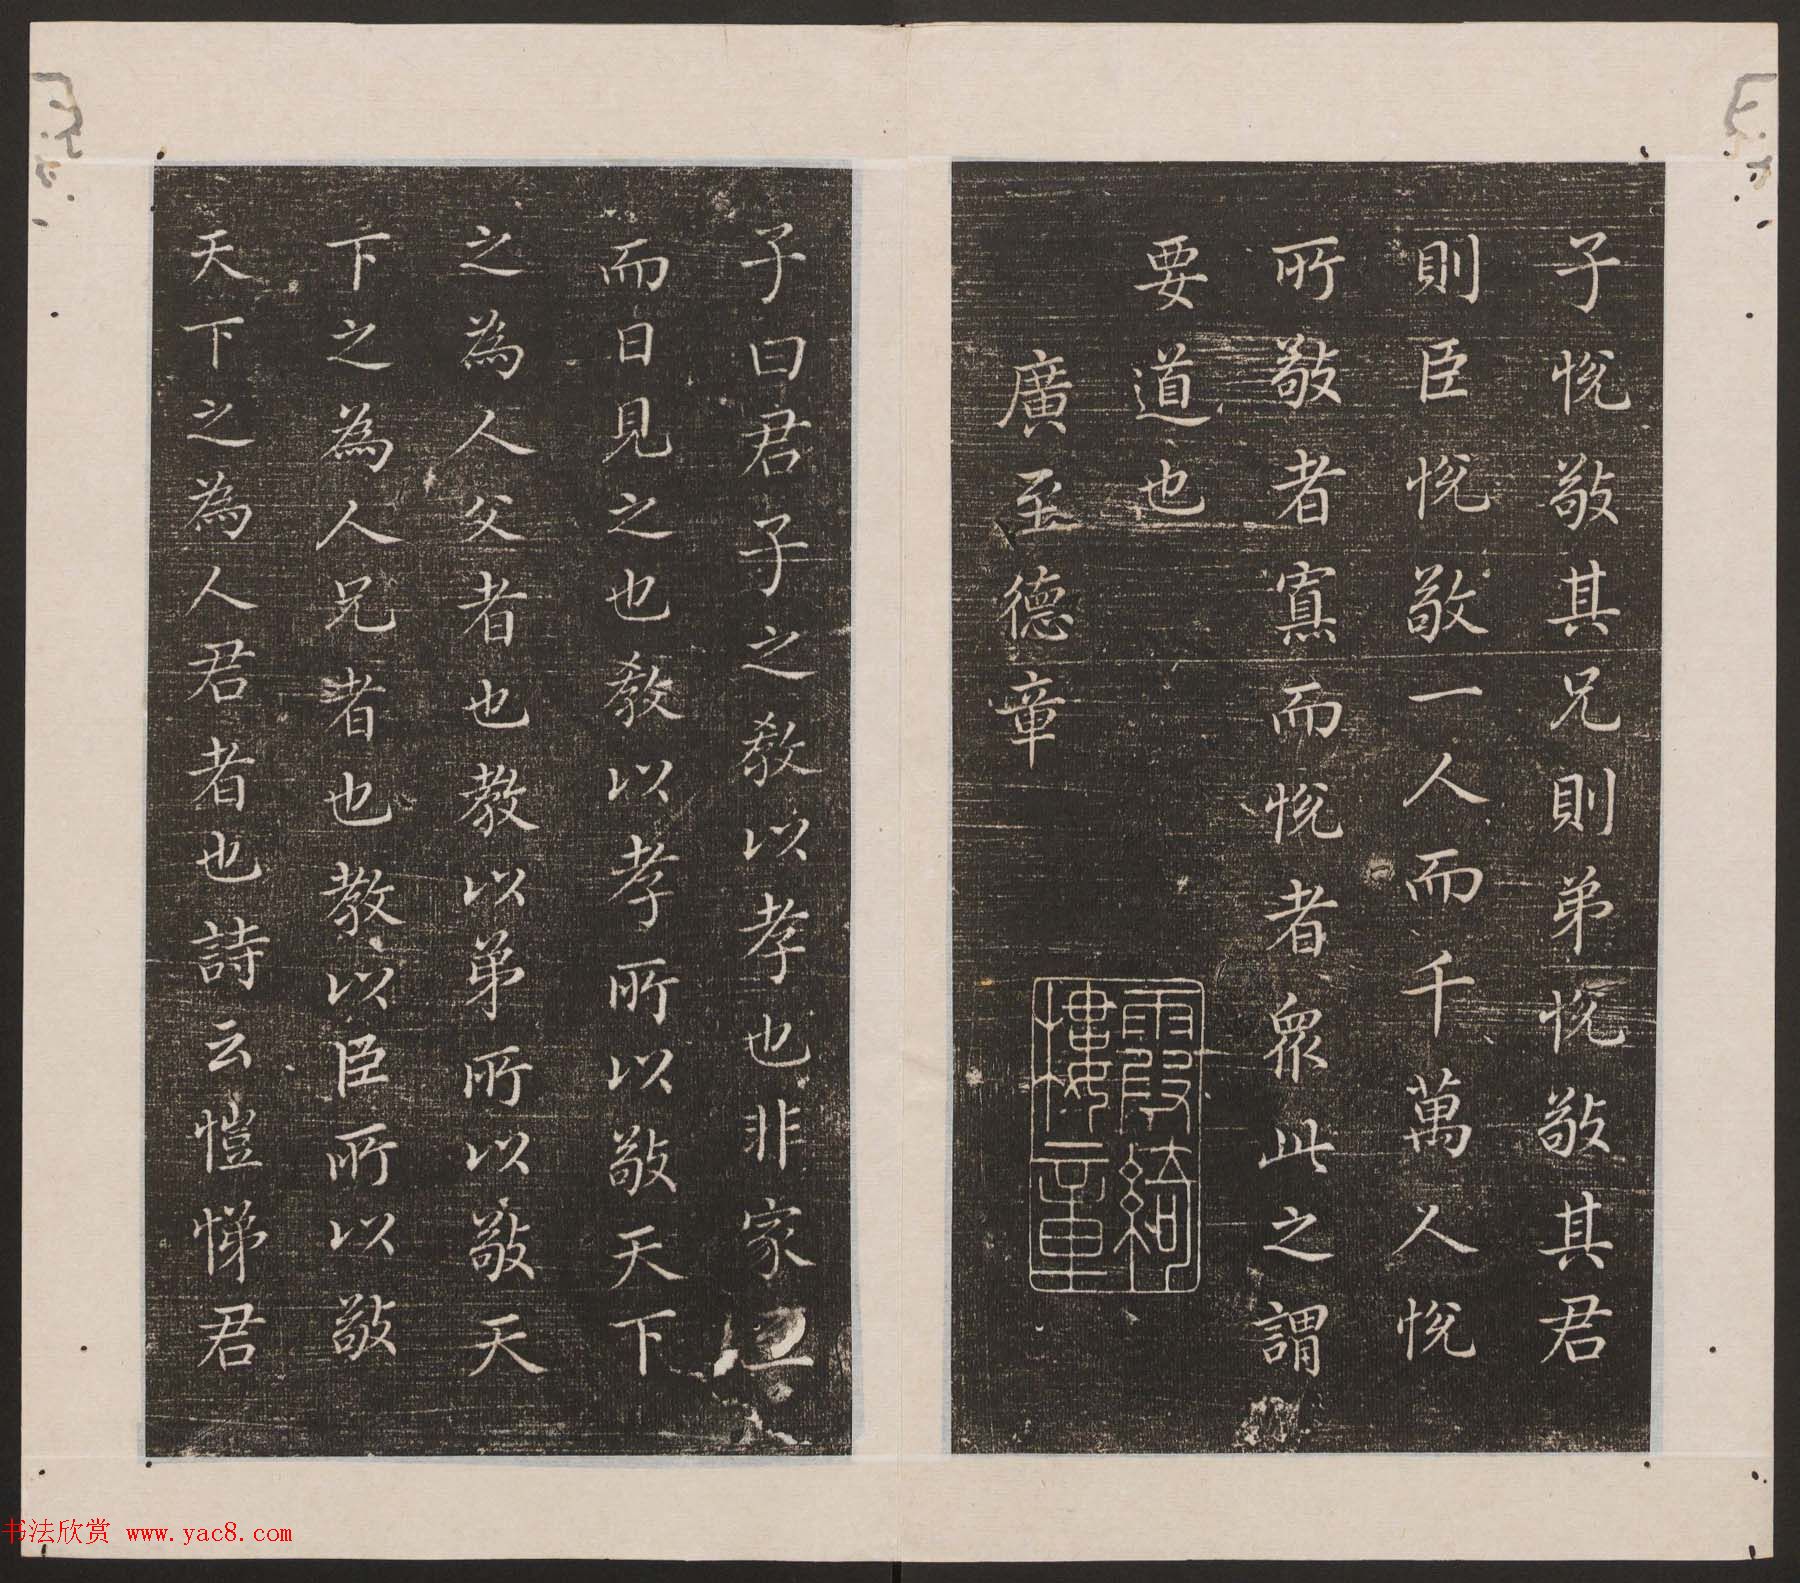 子悅敬其兄則弟悅敬其君
則臣悅敬一人而千萬人悅
所敬者寡而悅者眾此之謂
要道也
廣至德章
霞綺樓章
子曰君子之教以孝也非家至
而日見之也教以孝所以敬天下
之為人父者也教以弟所以敬天
下之為人兄者也教以臣所以敬
天下之為人君者也詩云愷悌君
书法欣赏 www.yac8.com